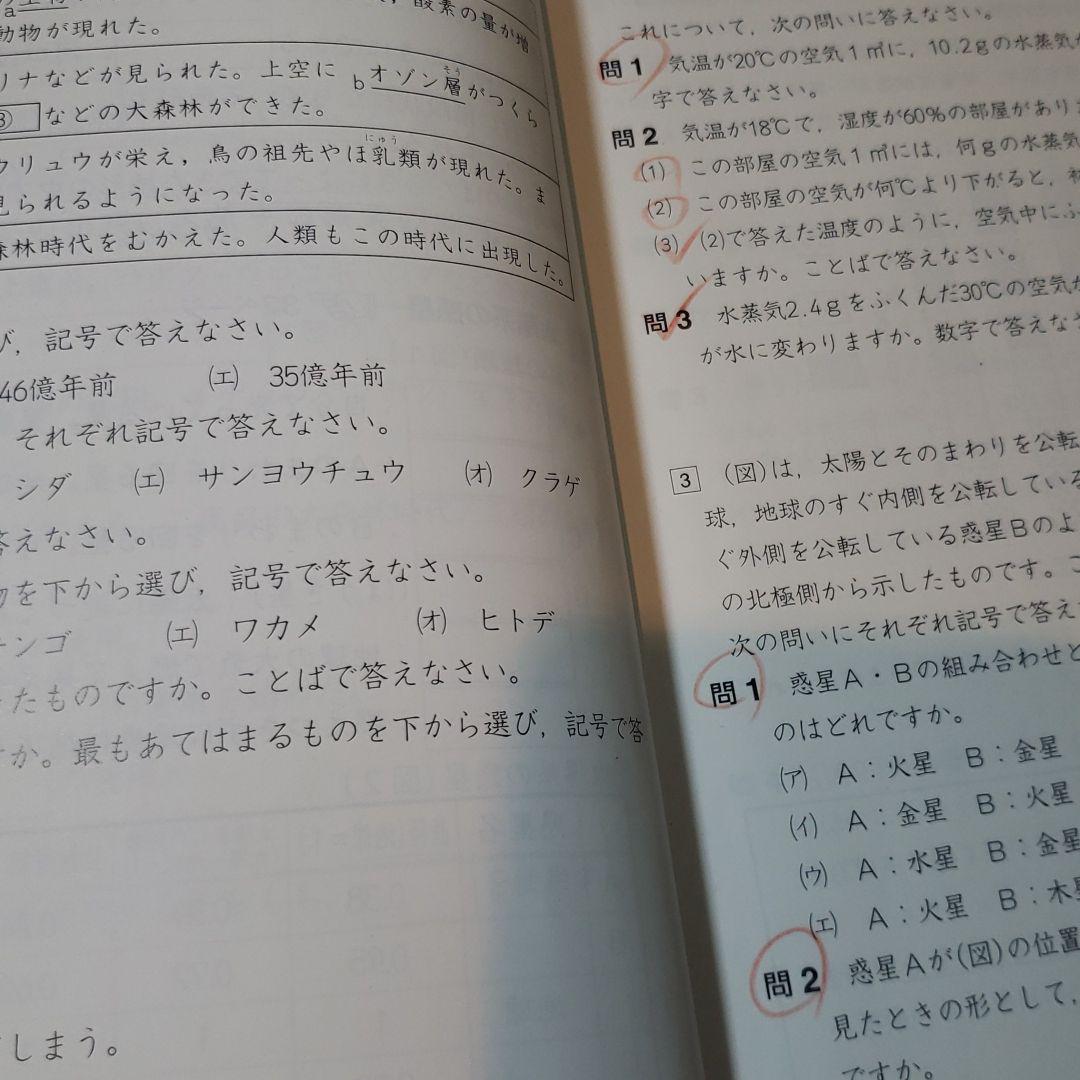 a
酸素の量が増
動物が現れた。
リナなどが見られた。上空に bオゾン層がつくら
そう
③ などの大森林ができた。
ウリュウが栄え，鳥の祖先やほ乳類が現れた。ま
にゅう
見られるようになった。
森林時代をむかえた。人類もこの時代に出現した。
び，記号で答えなさい。
46億年前 (エ) 35億年前
それぞれ記号で答えなさい。
シダ (エ) サンヨウチュウ (オ) クラゲ
答えなさい。
物を下から選び，記号で答えなさい。
ンゴ (エ) ワカメ (オ) ヒトデ
たものですか。ことばで答えなさい。
か。最もあてはまるものを下から選び，記号で答
しまう。
これについて，次の問いに答えなさい。
問1 気温が20℃の空気1㎥に，10.2gの水蒸気が
字で答えなさい。
問2 気温が18℃で，湿度が60%の部屋があり
(1) この部屋の空気1㎥には，何gの水蒸気
(2) この部屋の空気が何℃より下がると，
(3) (2)で答えた温度のように，空気中にふ
いますか。ことばで答えなさい。
問3 水蒸気2.4gをふくんだ30℃の空気が
が水に変わりますか。数字で答えなさ
3 (図)は，太陽とそのまわりを公転
球，地球のすぐ内側を公転している
ぐ外側を公転している惑星Bのよ
の北極側から示したものです。こ
次の問いにそれぞれ記号で答え
問1 惑星A・Bの組み合わせと
のはどれですか。
(ア) A：火星 B：金星
(イ) A：金星 B：火星
(ウ) A：水星 B：金星
(エ) A：火星 B：木星
問2 惑星Aが(図)の位置
見たときの形として，
ですか。